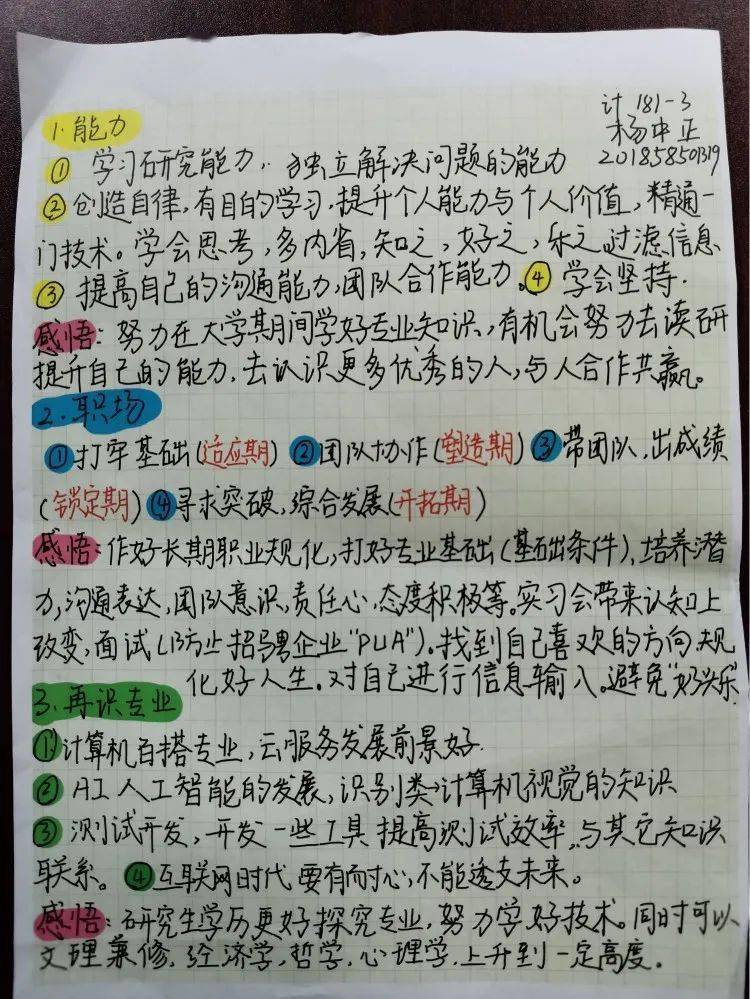 计 181-3
杨中正
201858501319
1.能力
① 学习研究能力,独立解决问题的能力
②创造自律,有目的学习,提升个人能力与个人价值,精通一
门技术。学会思考,多内省,知之,好之,乐之,过滤信息
③ 提高自己的沟通能力,团队合作能力。④ 学会坚持.
感悟:努力在大学期间学好专业知识,有机会努力去读研
提升自己的能力,去认识更多优秀的人,与人合作共赢。
2.职场
①打牢基础(适应期) ②团队协作(塑造期) ③带团队,出成绩
(锁定期) ④寻求突破,综合发展(开拓期)
感悟:作好长期职业规化,打好专业基础(基础条件),培养潜
力,沟通表达,团队意识,责任心,态度积极等。实习会带来认知上
改变,面试(防止招聘企业"PUA")。找到自己喜欢的方向,规
化好人生。对自己进行信息输入。避免"好兴乐"
3.再识专业
①计算机百搭专业,云服务发展前景好.
② AI人工智能的发展,识别类→计算机视觉的知识
③ 测试开发,开发一些工具提高测试效率,与其它知识
联系。④互联网时代 要有耐心,不能透支未来。
感悟:研究生学历更好探究专业,努力学好技术。同时可以
文理兼修,经济学,哲学,心理学,上升到一定高度。